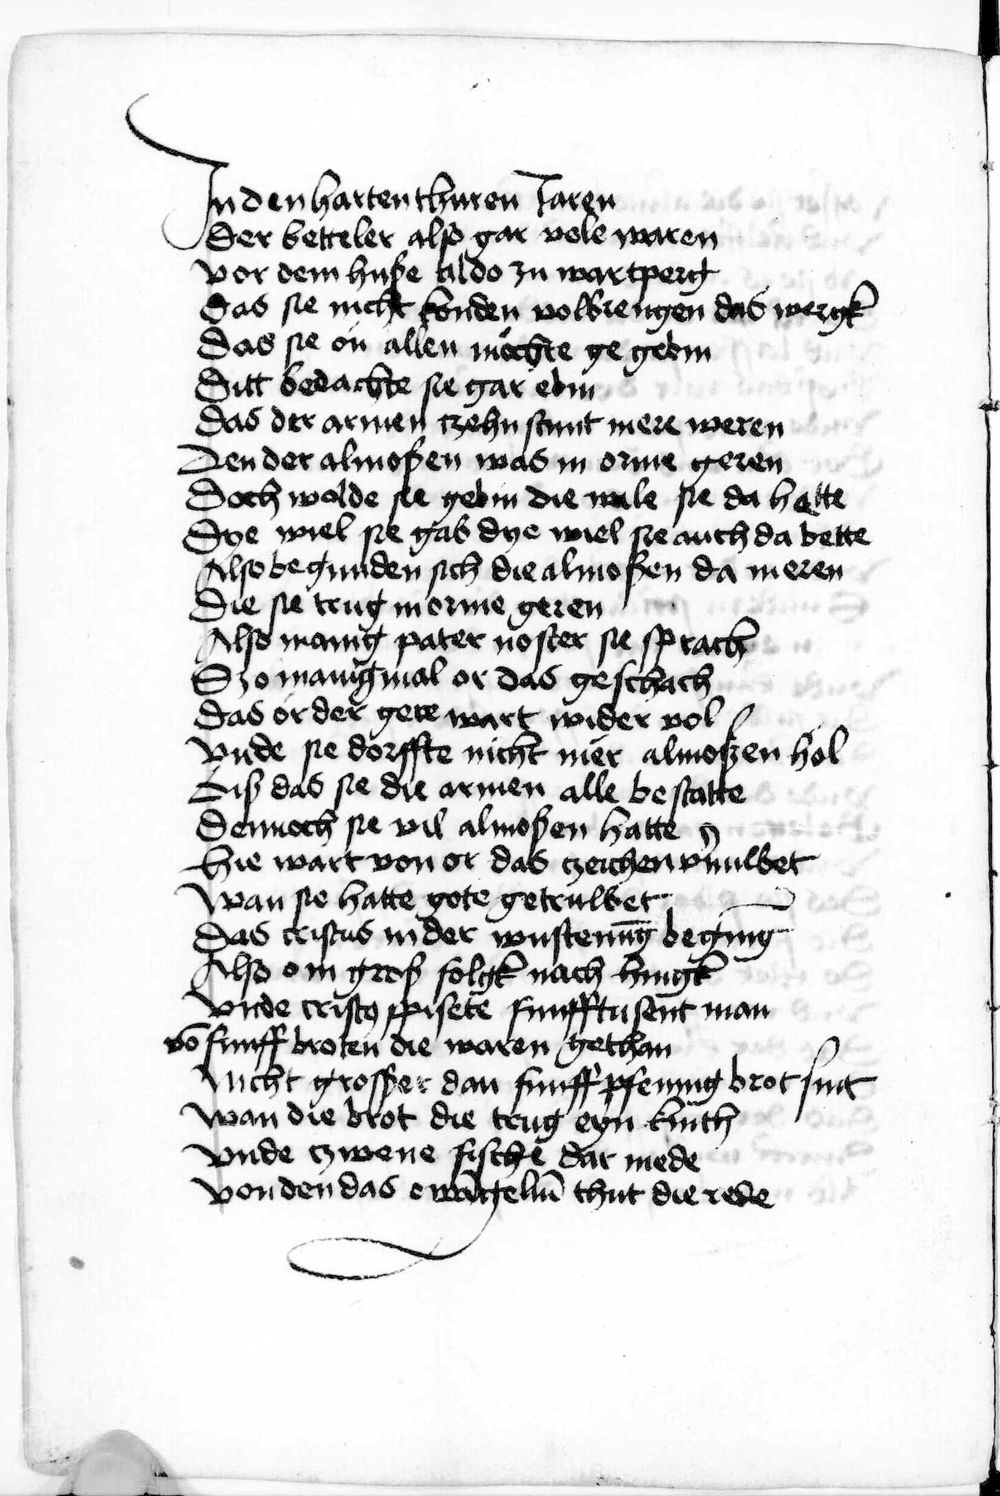 In den harten thuren Jaren
Der betteler alßo gar vole waren
Vor dem huße aldo zu wartperg
Das sie nicht konden volbrengen das wergk
Das sie ön allen möchte ge gebin
Ditt bedachte sie gar ebin
Das der armen czehn stunt mere weren
Den der almoßen was in orme geren
Doch wolde sie gebin die wile sie da hette
Dye wiel sie gab dye wiel sie auch da bette
Also begunden sich die almoßen da meren
Die sie trug in orme geren
Also manig pater noster sie sprach
Szo manigmal or das geschach
Das or der gere wart wider vol
Vnde sie dorffte nicht mer almoßen hol
Biß das sie die armen alle bestatte
Dennoch sie vil almoßen hatte
Hie wart von or das czeichen vnulbet
Wan sie hatte gote getrulbet
Das cristus in der wustenūg begīng
Also om groß folgk nach hingk
Vnde cristꝰ spisete funfftusent man
vō funff broten die waren gethan
Nicht grosßer dan funff pfennig brot sint
Wan die brot die trug eyn kinth
Vnde czwene fische dar mede
Von den das ewāgeliū thut die rede